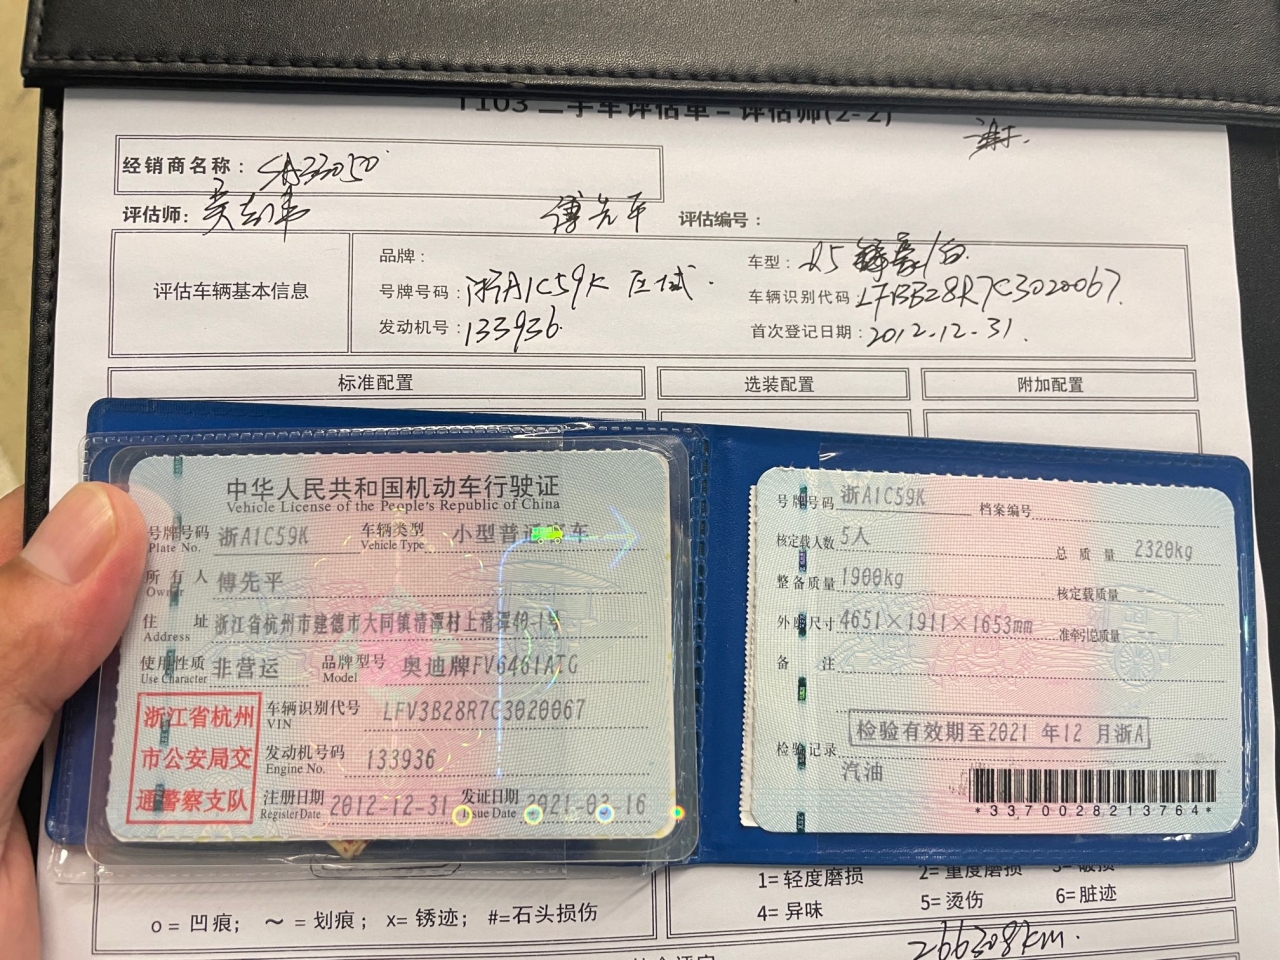 T103 二手车评估单 - 评估师(2-2)
经销商名称：SA33050
评估师：
傅先平
评估编号：
评估车辆基本信息
品牌：
车型：Q5
号牌号码：浙A1C59K 区域.
车辆识别代码
发动机号：133936
首次登记日期：2012.12.31.
标准配置
选装配置
附加配置
中华人民共和国机动车行驶证
Vehicle License of the People's Republic of China
号牌号码 浙A1C59K 车辆类型 小型普通客车
Plate No. Vehicle Type
所有人 傅先平
Owner
住址 浙江省杭州市建德市大同镇清潭村上清潭40-1号
Address
使用性质 非营运 品牌型号 奥迪牌FV6461ATG
Use Character Model
浙江省杭州
市公安局交
通警察支队
车辆识别代号 LFV3B28R7C3020067
VIN
发动机号码 133936
Engine No.
注册日期 2012-12-31 发证日期 2021-03-16
Register Date Issue Date
号牌号码 浙A1C59K 档案编号
核定载人数 5人 总质量 2320kg
整备质量 1900kg 核定载质量 --
外廓尺寸 4651×1911×1653mm 准牵引总质量 --
备注
检验有效期至2021年12月浙A
检验记录
汽油
*3370028213764*
1= 轻度磨损 2= 重度磨损 3= 破损
4= 异味 5= 烫伤 6= 脏迹
o = 凹痕； ～ = 划痕； x= 锈迹； #=石头损伤
266308km.